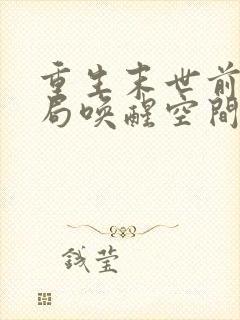 重生末世前
局唤醒空間
钱莹